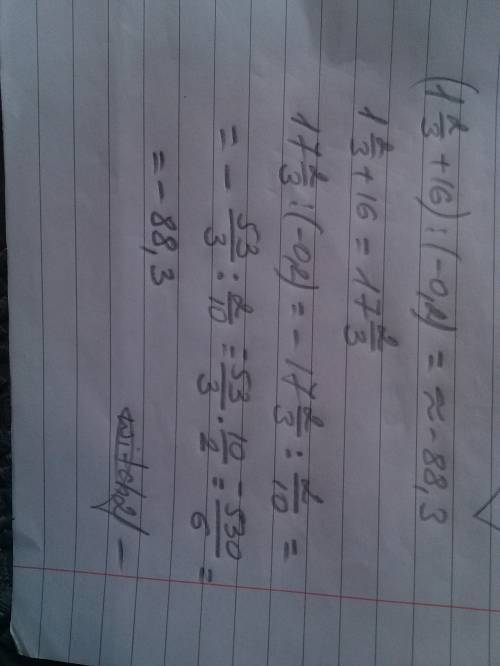 (1 2/3 + 16) : (-0,2) = ≈ -88,3
1 2/3 + 16 = 17 2/3
17 2/3 : (-0,2) = - 17 2/3 : 2/10 =
= - 53/3 : 2/10 = 53/3 · 10/2 = -530/6 =
= -88,3